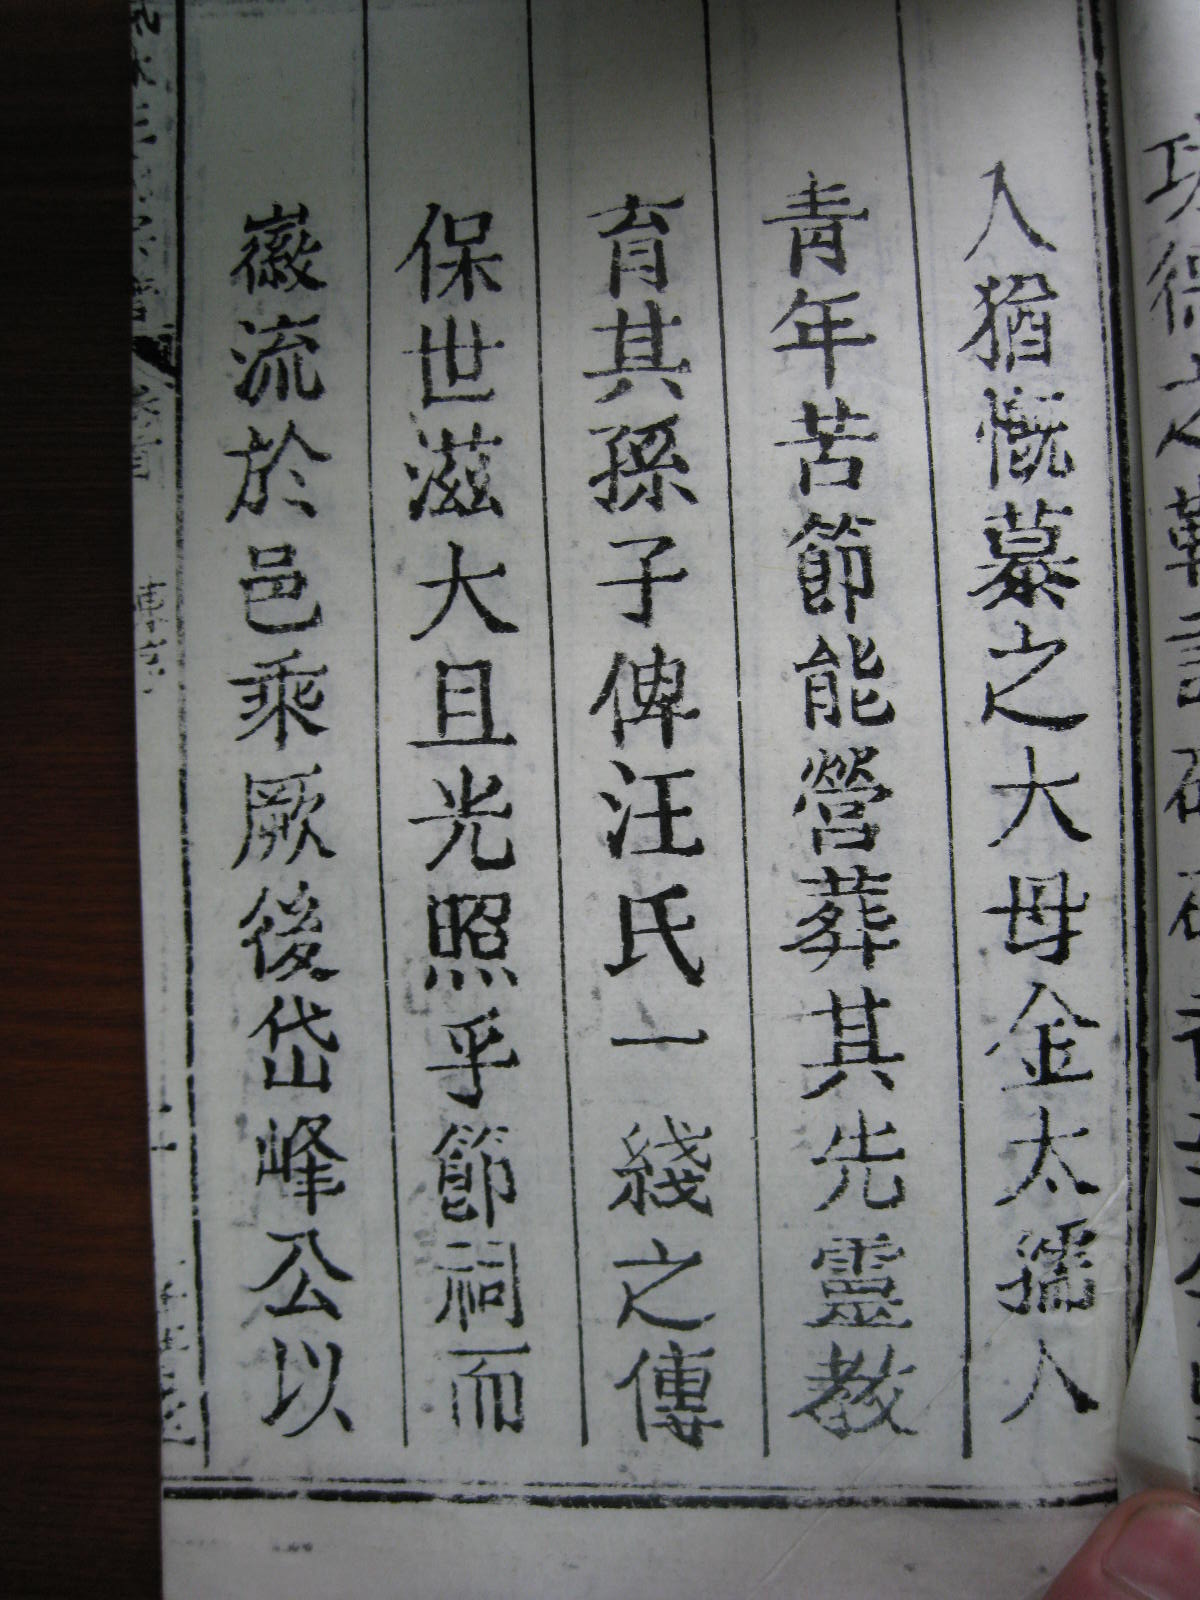 人猶慨慕之大母金太孺人
青年苦節能營葬其先靈教
育其孫子俾汪氏一綫之傳
保世滋大且光照乎節祠而
徽流於邑乘厥後岱峰公以